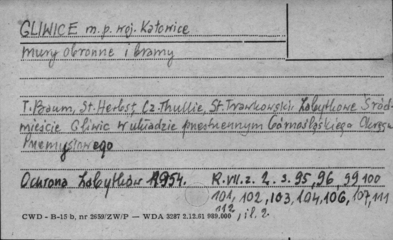 GLIWICE m.p. woj. Katowice
mury obronne i bramy
T. Baum, St. Herbst, Cz. Thullie, St. Trawkowski: Zabytkowe Śród-
mieście Gliwic w układzie przestrzennym Górnośląskiego Okręgu
Przemysłowego
Ochrona Zabytków 1954. R. VII. z. 2. s. 95, 96, 99, 100
101, 102, 103, 104, 106, 107, 111
112, il. 2.
CWD - B-15 b, nr 2659/ZW/P — WDA 3287 2.12.61 989.000